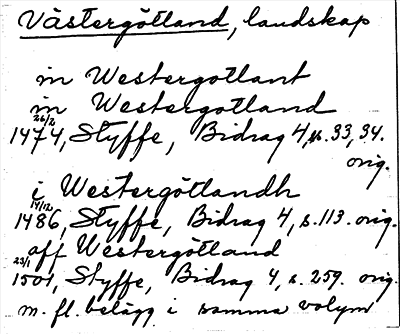 Västergötland, landskap
in Westergotlant
in Westergotland
26/2
1474, Styffe, Bidrag 4, s. 33, 34.
orig.
i Westergötlandh
14/12
1486, Styffe, Bidrag 4, s. 113. orig.
aff Westergötland
23/1
1501, Styffe, Bidrag 4, s. 259. orig.
m. fl. belägg i samma volym